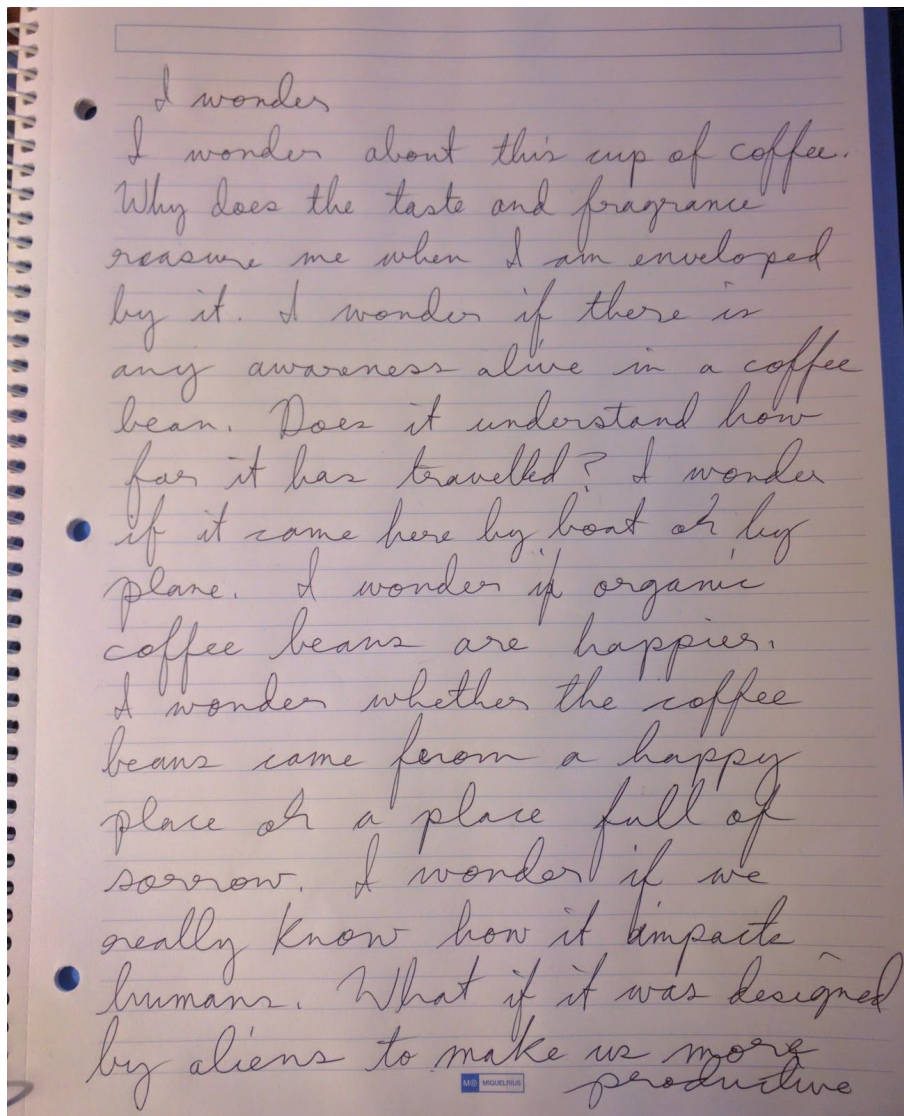 I wonder
I wonder about this cup of coffee.
Why does the taste and fragrance
reassure me when I am enveloped
by it. I wonder if there is
any awareness alive in a coffee
bean. Does it understand how
far it has travelled? I wonder
if it came here by boat or by
plane. I wonder if organic
coffee beans are happier.
I wonder whether the coffee
beans came from a happy
place or a place full of
sorrow. I wonder if we
really know how it impacts
humans. What if it was designed
by aliens to make us more
productive
MIQUELRIUS